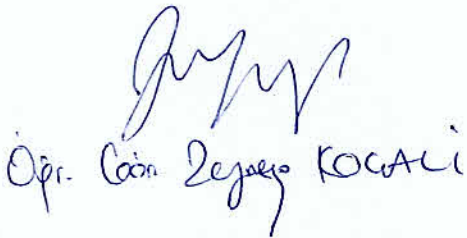 Öğr. Gör. Zeynep KOCALİ